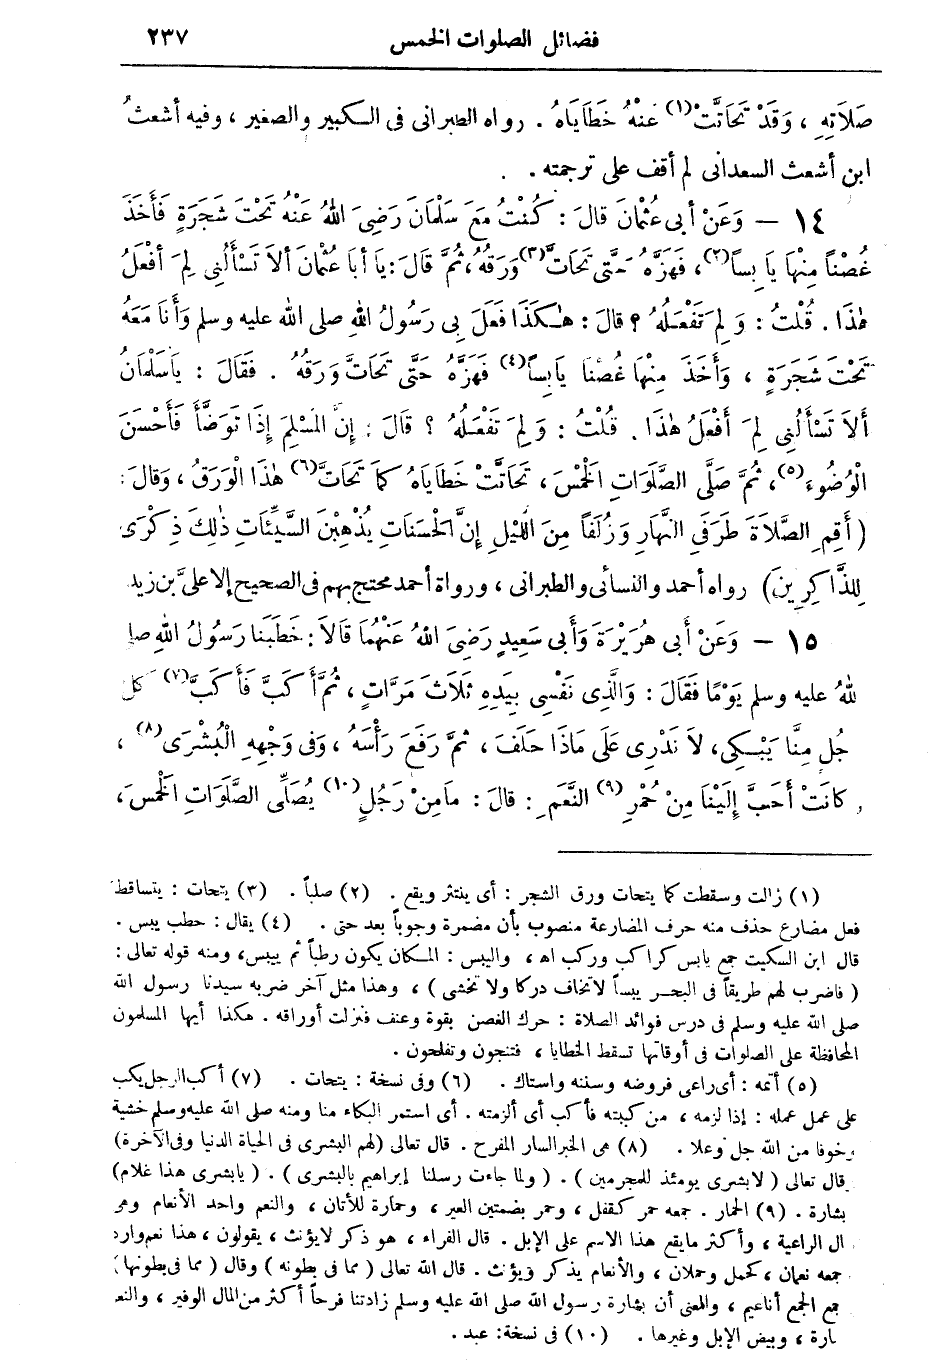 فضائل الصلوات الخمس ٢٣٧
صَلَاتِهِ ، وَقَدْ تَحَاتَّتْ(١) عَنْهُ خَطَايَاهُ . رواه الطبرانى فى الكبير والصغير ، وفيه أشعثُ
ابن أشعث السعدانى لم أقف على ترجمته .
١٤ – وَعَنْ أَبى عُثْمَانَ قالَ : كُنْتُ مَعَ سَلْمَانَ رَضِىَ اللهُ عَنْهُ تَحْتَ شَجَرَةٍ فَأَخَذَ
غُصْناً مِنْهَا يَابِساً(٢)، فَهَزَّهُ حَتَّى تَحَاتَّ(٣) وَرَقُهُ، ثُمَّ قَالَ : يَا أَبا عُثْمَانَ أَلاَ تَسْأَلُنِى لِمَ أَفْعَلُ
هٰذَا . قُلْتُ : وَ لِمَ تَفْعَلُهُ ؟ قالَ : هٰكَذَا فَعَلَ بِى رَسُولُ اللهِ صلى الله عليه وسلم وَأَنَا مَعَهُ
تَحْتَ شَجَرَةٍ ، وَأَخَذَ مِنْهَا غُصْنا يَابِساً(٤) فَهَزَّهُ حَتَّى تَحَاتَّ وَرَقُهُ . فَقَالَ : يَاسَلْمَانُ
أَلاَ تَسْأَلُنِى لِمَ أَفْعَلُ هٰذَا . قُلْتُ : وَ لِمَ تَفْعَلُهُ ؟ قَالَ : إِنَّ الْمُسْلِمَ إِذَا تَوَضَّأَ فَأَحْسَنَ
الْوُضُوءَ(٥) ، ثُمَّ صَلَّى الصَّلَوَاتِ الْخَمْسَ ، تَحَاتَّتْ خَطَايَاهُ كَمَا تَحَاتَّ(٦) هٰذَا الْوَرَقُ ، وَقَالَ :
( أَقِمِ الصَّلاَةَ طَرَفَىِ النَّهَارِ وَزُلَفاً مِنَ اللَّيْلِ إِنَّ الْحَسَنَاتِ يُذْهِبْنَ السَّيِّئَاتِ ذٰلِكَ ذِكْرَى
لِلذَّاكِرِينَ ) رواه أحمد والنسائى والطبرانى ، ورواة أحمد محتج بهم فى الصحيح إلا علىَّ بن زيد
١٥ – وَعَنْ أَبى هُرَيْرَةَ وَأَبى سَعِيدٍ رَضِىَ اللهُ عَنْهُمَا قَالاَ : خَطَبَنَا رَسُولُ اللهِ صلى
للهُ عليه وسلم يَوْمًا فَقَالَ : وَالَّذِى نَفْسِى بِيَدِهِ ثَلاَثَ مَرَّاتٍ ، ثُمَّ أَكَبَّ فَأَكَبَّ(٧) كل
جُلٍ مِنَّا يَبْكِى، لاَ نَدْرِى عَلَى مَاذَا حَلَفَ ، ثُمَّ رَفَعَ رَأْسَهُ ، وَفى وَجْهِهِ الْبُشْرَى(٨) ،
كَانَتْ أَحَبَّ إِلَيْنَا مِنْ حُمْرِ(٩) النَّعَمِ : قالَ : مَامِنْ رَجُلٍ(١٠) يُصَلِّى الصَّلَوَاتِ الْخَمْسَ،
(١) زالت وسقطت كما يتحات ورق الشجر : أى ينتثر ويقع . (٢) صلباً . (٣) يتحات : يتساقط
فعل مضارع حذف منه حرف المضارعة منصوب بأن مضمرة وجوباً بعد حتى . (٤) يقال : حطب يبس .
قال ابن السكيت جمع يابس كراكب وركب اه ، واليبس : المكان يكون رطباً ثم ييبس، ومنه قوله تعالى :
( فاضرب لهم طريقاً فى البحر يبساً لاتخاف دركا ولا تخشى ) ، وهذا مثل آخر ضربه سيدنا رسول الله
صلى الله عليه وسلم فى درس فوائد الصلاة : حرك الغصن بقوة وعنف فنزلت أوراقه . هكذا أيها المسلمون
المحافظة على الصلوات فى أوقاتها تسقط الخطايا ، فتنجون وتفلحون .
(٥) أتمه : أى راعى فروضه وسننه واستاك . (٦) وفى نسخة : يتحات . (٧) أكب الرجل يكب
على عمل عمله : إذا لزمه ، من كببته فأكب أى ألزمته . أى استمر البكاء منا ومنه صلى الله عليه وسلم خشية
وخوفا من الله جل وعلا . (٨) هى الخبر السار المفرح . قال تعالى (لهم البشرى فى الحياة الدنيا وفى الآخرة)
قال تعالى ( لابشرى يومئذ للمجرمين ) . ( ولما جاءت رسلنا إبراهيم بالبشرى ) . ( يابشرى هذا غلام)
بشارة . (٩) الحمار . جمعه حمر كقفل ، وحمر بضمتين العير ، وحمارة للأتان ، والنعم واحد الأنعام وهى
ال الراعية ، وأكثر مايقع هذا الاسم على الإبل . قال الفراء ، هو ذكر لايؤنث ، يقولون ، هذا نعم وارد
جمعه نعمان ، كحمل وحملان ، والأنعام يذكر ويؤنث . قال الله تعالى ( مما فى بطونه ) وقال ( مما فى بطونها )
جمع الجمع أناعيم ، والمعنى أن بشارة رسول الله صلى الله عليه وسلم زادتنا فرحاً أكثر من المال الوفير ، والنعـ
ـارة ، وبيض الإبل وغيرها . (١٠) فى نسخة: عبد .